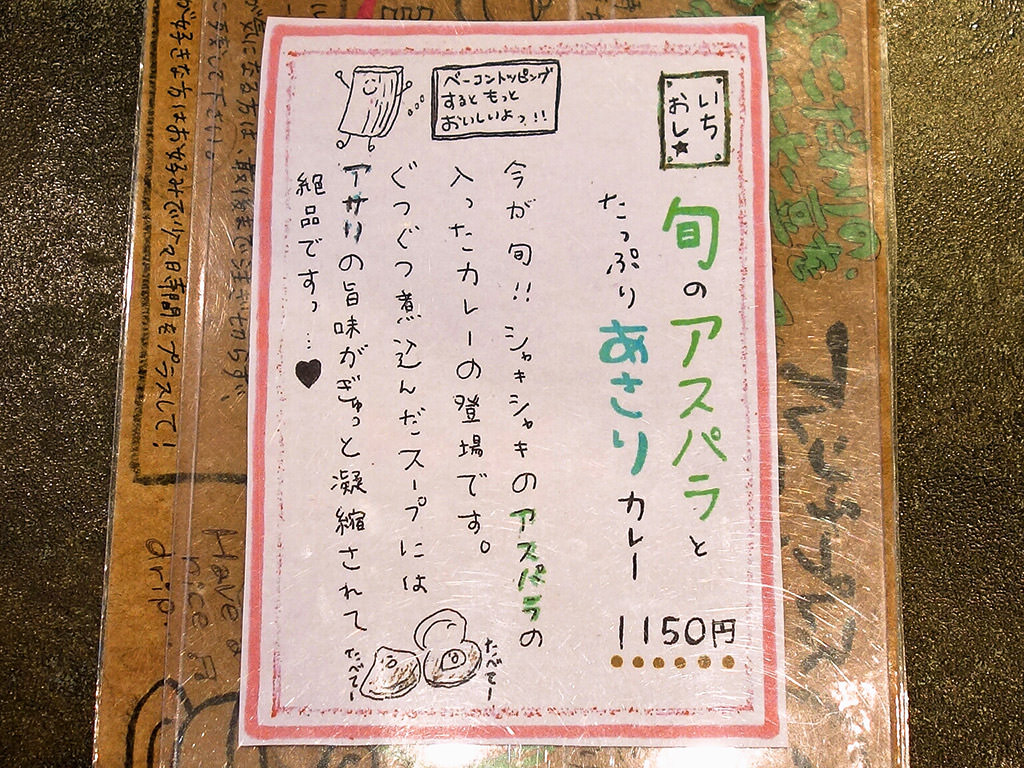 いち
おし★
旬のアスパラと
たっぷりあさりカレー
1150円
ベーコントッピング
するともっと
おいしいよっ!!
今が旬!!シャキシャキのアスパラの
入ったカレーの登場です。
ぐつぐつ煮込んだスープには
アサリの旨味がぎゅっと凝縮されて
絶品ですっ…♥
たべてー
たべてー
Have a
nice
drip